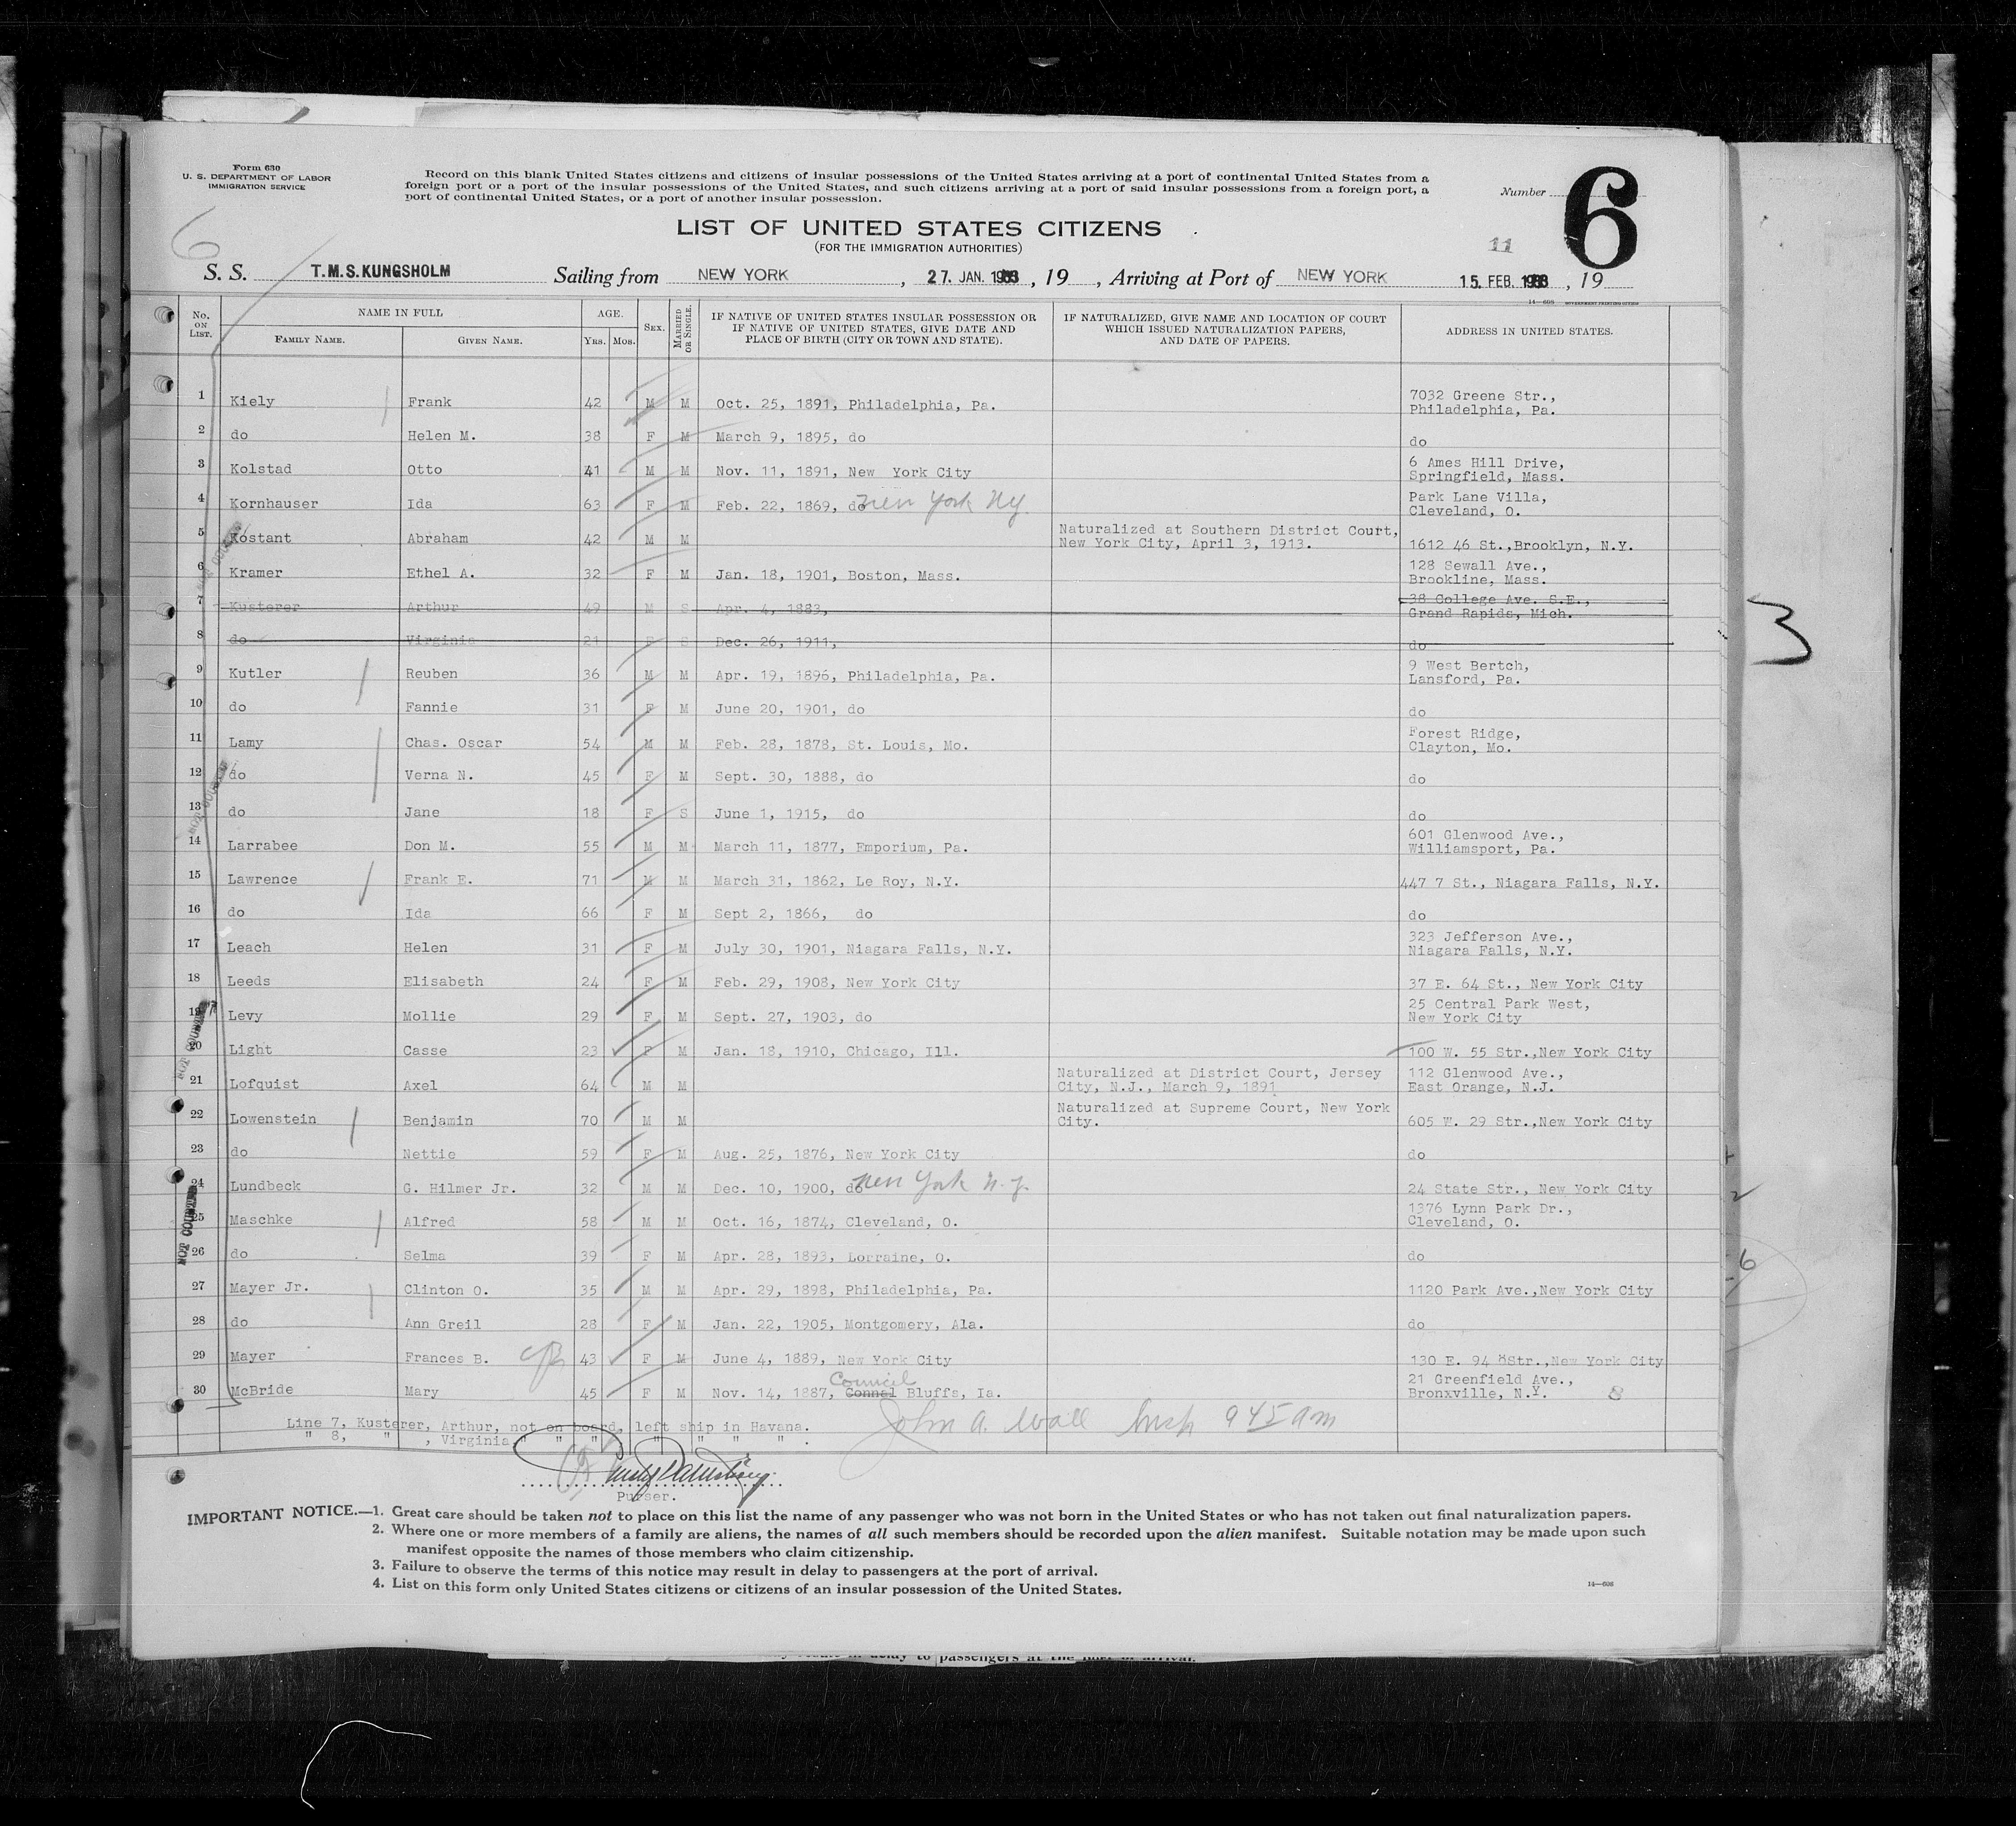 Form 630
U. S. DEPARTMENT OF LABOR
IMMIGRATION SERVICE
Record on this blank United States citizens and citizens of insular possessions of the United States arriving at a port of continental United States from a
foreign port or a port of the insular possessions of the United States, and such citizens arriving at a port of said insular possessions from a foreign port, a
port of continental United States, or a port of another insular possession.
Number 6
6
LIST OF UNITED STATES CITIZENS
(FOR THE IMMIGRATION AUTHORITIES)
11
S. S. T.M.S.KUNGSHOLM Sailing from NEW YORK, 27. JAN. 1933, 19 , Arriving at Port of NEW YORK 15. FEB. 1933, 19
14—608 GOVERNMENT PRINTING OFFICE
No. ON LIST. NAME IN FULL AGE. SEX. MARRIED OR SINGLE. IF NATIVE OF UNITED STATES INSULAR POSSESSION OR IF NATIVE OF UNITED STATES, GIVE DATE AND PLACE OF BIRTH (CITY OR TOWN AND STATE). IF NATURALIZED, GIVE NAME AND LOCATION OF COURT WHICH ISSUED NATURALIZATION PAPERS, AND DATE OF PAPERS. ADDRESS IN UNITED STATES.
FAMILY NAME. GIVEN NAME. Yrs. Mos.
1 Kiely Frank 42 M M Oct. 25, 1891, Philadelphia, Pa. 7032 Greene Str., Philadelphia, Pa.
2 do Helen M. 38 F M March 9, 1895, do do
3 Kolstad Otto 41 M M Nov. 11, 1891, New York City 6 Ames Hill Drive, Springfield, Mass.
4 Kornhauser Ida 63 F M Feb. 22, 1869, do New York NY. Park Lane Villa, Cleveland, O.
5 Kostant Abraham 42 M M Naturalized at Southern District Court, New York City, April 3, 1913. 1612 46 St.,Brooklyn, N.Y.
6 Kramer Ethel A. 32 F M Jan. 18, 1901, Boston, Mass. 128 Sewall Ave., Brookline, Mass.
7 Kusterer Arthur 49 M S Apr. 4, 1883, 38 College Ave. S.E., Grand Rapids, Mich.
8 do Virginia 21 F S Dec. 26, 1911, do
3
9 Kutler Reuben 36 M M Apr. 19, 1896, Philadelphia, Pa. 9 West Bertch, Lansford, Pa.
10 do Fannie 31 F M June 20, 1901, do do
11 Lamy Chas. Oscar 54 M M Feb. 28, 1878, St. Louis, Mo. Forest Ridge, Clayton, Mo.
12 do Verna N. 45 F M Sept. 30, 1888, do do
13 do Jane 18 F S June 1, 1915, do do
14 Larrabee Don M. 55 M M March 11, 1877, Emporium, Pa. 601 Glenwood Ave., Williamsport, Pa.
15 Lawrence Frank E. 71 M M March 31, 1862, Le Roy, N.Y. 447 7 St., Niagara Falls, N.Y.
16 do Ida 66 F M Sept 2, 1866, do do
17 Leach Helen 31 F M July 30, 1901, Niagara Falls, N.Y. 323 Jefferson Ave., Niagara Falls, N.Y.
18 Leeds Elisabeth 24 F M Feb. 29, 1908, New York City 37 E. 64 St., New York City
19 Levy Mollie 29 F M Sept. 27, 1903, do 25 Central Park West, New York City
20 Light Casse 23 F M Jan. 18, 1910, Chicago, Ill. 100 W. 55 Str.,New York City
21 Lofquist Axel 64 M M Naturalized at District Court, Jersey City, N.J., March 9, 1891 112 Glenwood Ave., East Orange, N.J.
22 Lowenstein Benjamin 70 M M Naturalized at Supreme Court, New York City. 605 W. 29 Str.,New York City
23 do Nettie 59 F M Aug. 25, 1876, New York City do
24 Lundbeck G. Hilmer Jr. 32 M M Dec. 10, 1900, do New York N.Y. 24 State Str., New York City
2
NOT COUNTED
25 Maschke Alfred 58 M M Oct. 16, 1874, Cleveland, O. 1376 Lynn Park Dr., Cleveland, O.
26 do Selma 39 F M Apr. 28, 1893, Lorraine, O. do
6
27 Mayer Jr. Clinton O. 35 M M Apr. 29, 1898, Philadelphia, Pa. 1120 Park Ave.,New York City
28 do Ann Greil 28 F M Jan. 22, 1905, Montgomery, Ala. do
29 Mayer Frances B. 43 F M June 4, 1889, New York City 130 E. 94 Str.,New York City
30 McBride Mary 45 F M Nov. 14, 1887, Connel Council Bluffs, Ia. 21 Greenfield Ave., Bronxville, N.Y. 8
Line 7, Kusterer, Arthur, not on board, left ship in Havana.
" 8, " , Virginia " " " " " " " .
John A. Wall Insp 945 am
Purser.
IMPORTANT NOTICE.—1. Great care should be taken not to place on this list the name of any passenger who was not born in the United States or who has not taken out final naturalization papers.
2. Where one or more members of a family are aliens, the names of all such members should be recorded upon the alien manifest. Suitable notation may be made upon such
manifest opposite the names of those members who claim citizenship.
3. Failure to observe the terms of this notice may result in delay to passengers at the port of arrival.
4. List on this form only United States citizens or citizens of an insular possession of the United States.
14—608